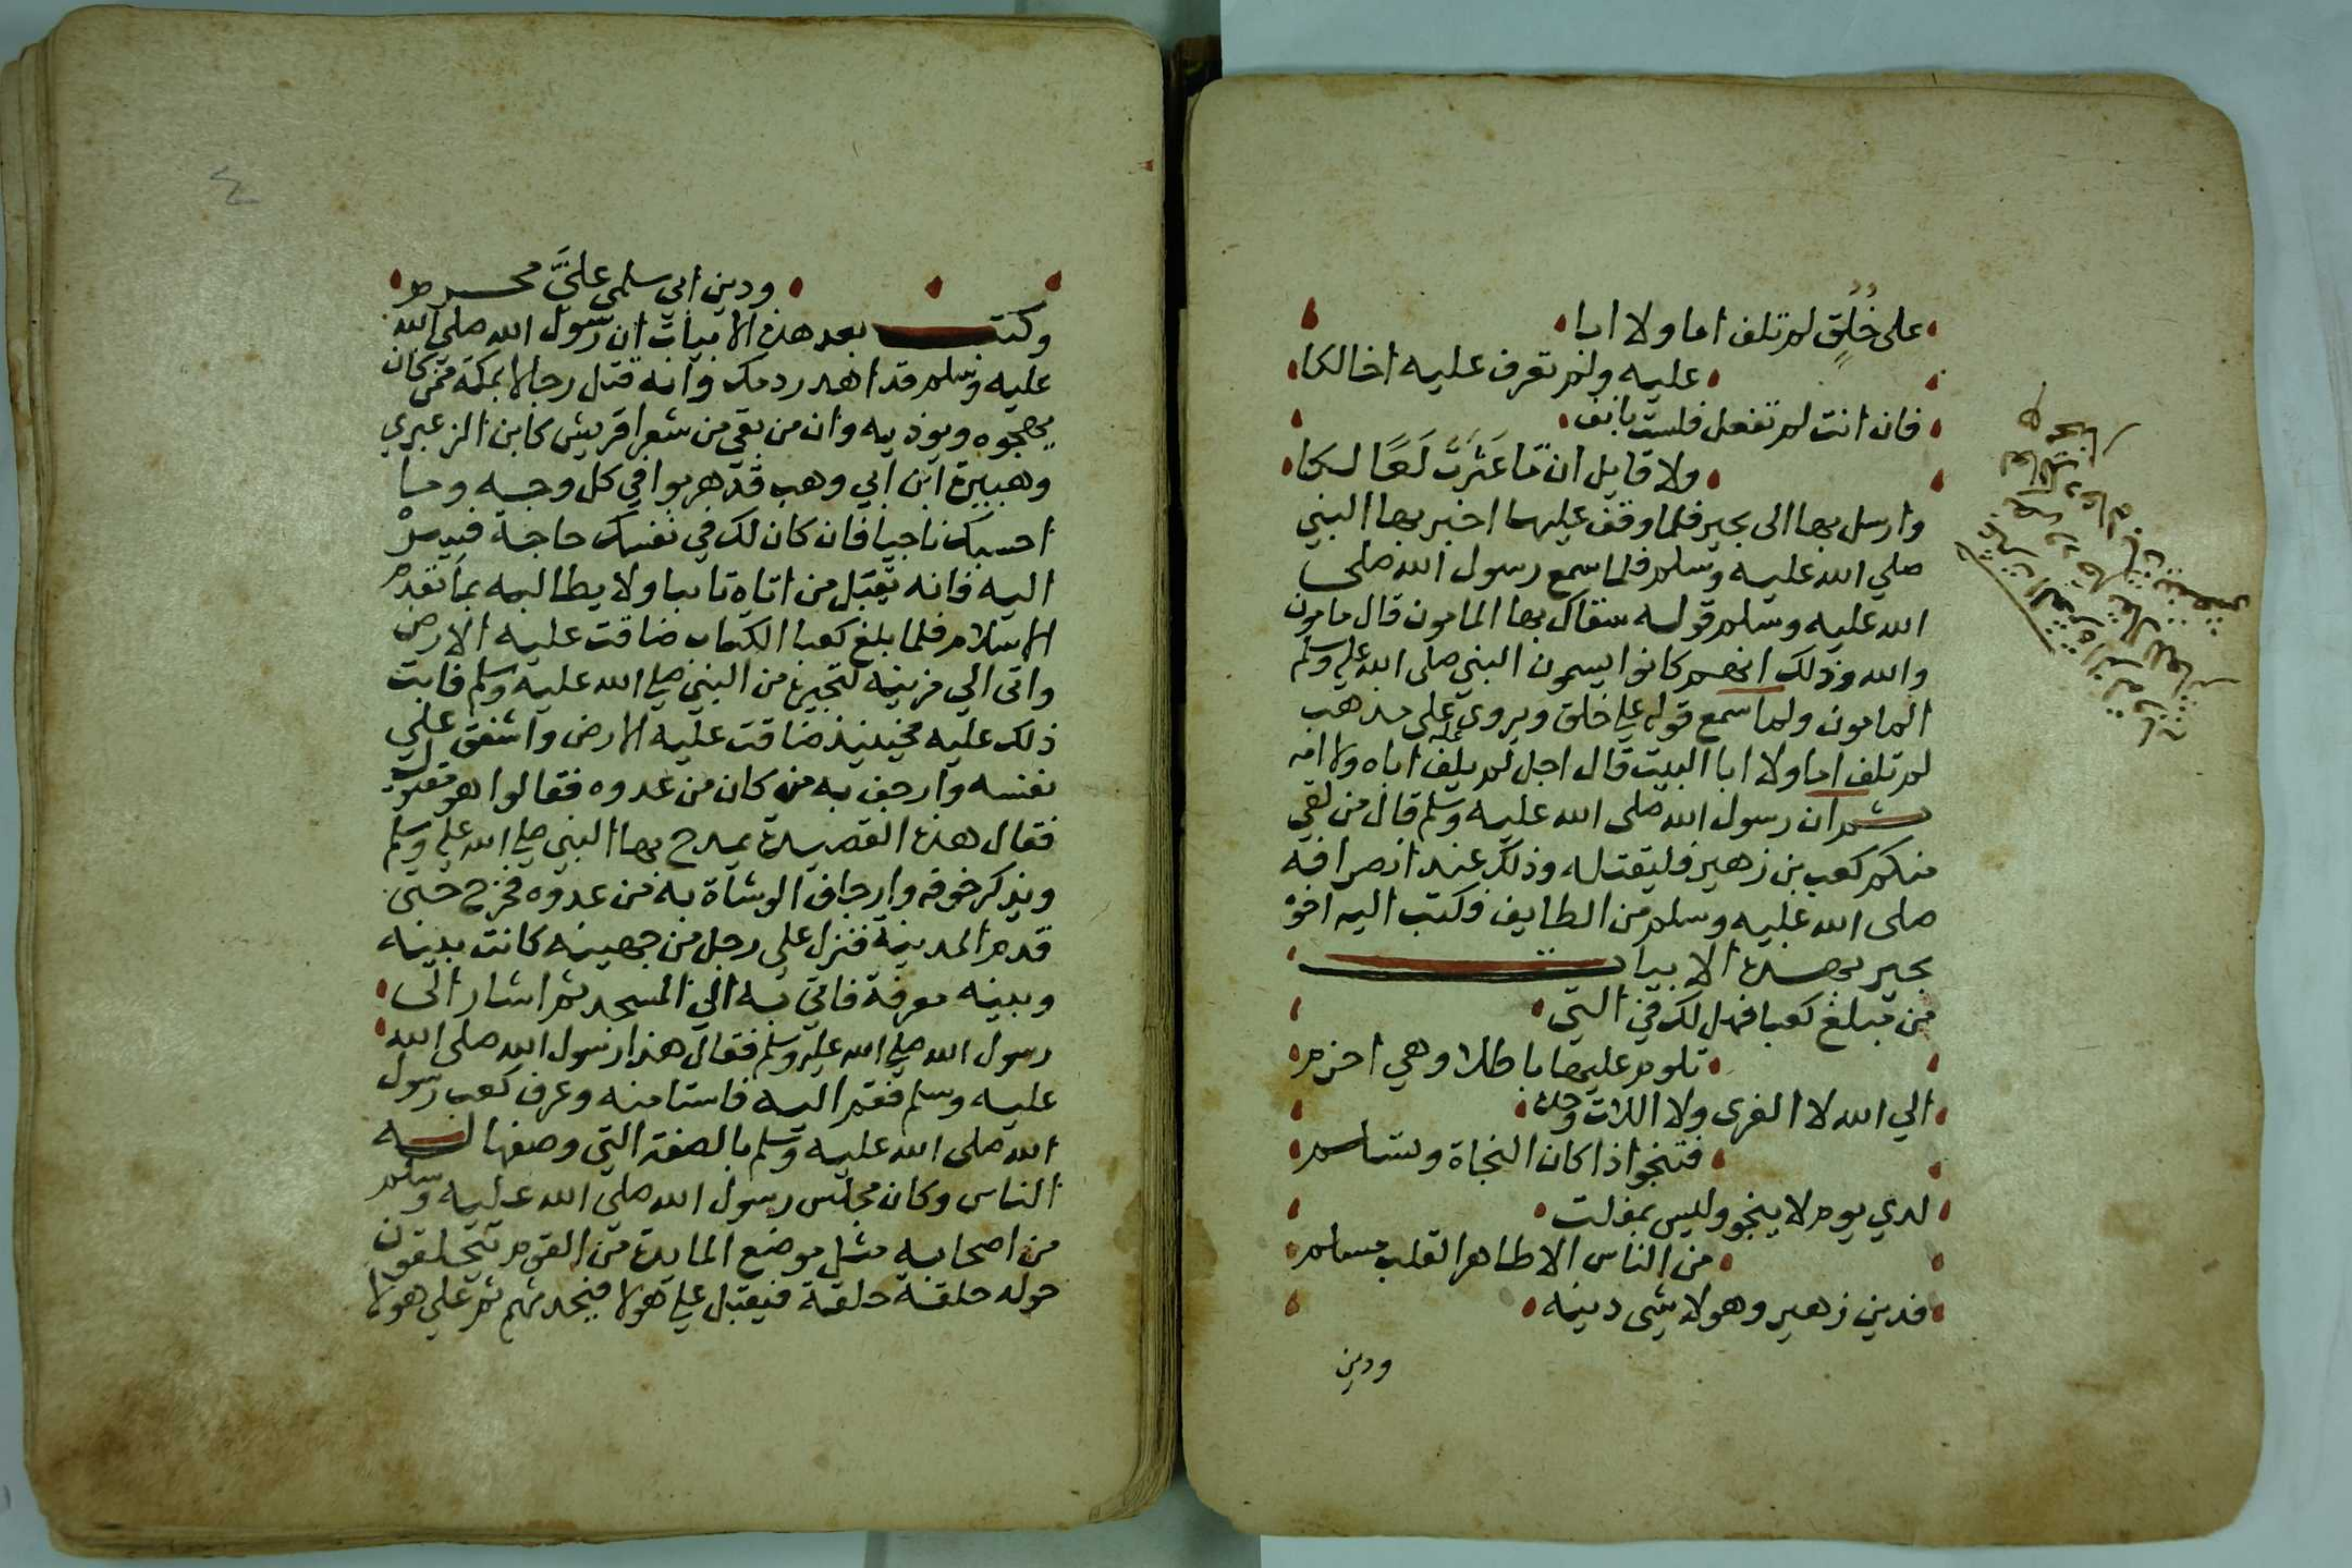 على خُلُقٍ لم تلف اما ولا ابا
عليه ولم تعرف عليه اخا لكا
فان انت لم تفعل فلست بآنف
ولا قايل ان ما عَثَرتَ لَعًا لكا
وارسل بها الى بجير فلما وقف عليها اخبر بها النبي
صلي الله عليه وسلم فلما سمع رسول الله صلى
الله عليه وسلم قوله سقاك بها المامون قال مامون
والله وذلك انهم كانوا يسمون النبي صلى الله عليه وسلم
المامون ولما سمع قوله علي خلق ويروي على مذهب
لم تلف اما ولا ابا البيت قال اجل لم يلف اباه ولا امه
ثم ان رسول الله صلى الله عليه وسلم قال من لقي
منكم كعب بن زهير فليقتله وذلك عند انصرافه
صلى الله عليه وسلم من الطايف فكتب اليه اخوه
بجير بهذه الابيات
من مبلغ كعبا فهل لك في التي
تلوم عليها باطلا وهي احزم
الي الله لا العزى ولا اللات وحده
فتنجوا اذا كان النجاة وتسلم
لدي يوم لا ينجو وليس بمفلت
من الناس الا طاهر القلب مسلم
فدين زهير وهو لا شى دينه
ودين
ودين ابي سلمى عليَّ محرم
وكتب بعد هذه الابيات ان رسول الله صلى الله
عليه وسلم قد اهدر دمك وانه قتل رجالا بمكة ممن كان
يهجوه ويوذيه وان من بقي من شعرا قريش كابن الزعبري
وهبيرة ابن ابي وهب قد هربوا في كل وجه وما
احسبك ناجيا فان كان لك في نفسك حاجة فصر
اليه فانه يقبل من اتاه تايبا ولا يطالبه بما تقدم
الاسلام فلما بلغ كعبا الكتاب ضاقت عليه الارض
واتى الي مزينه لتجيره من النبي صلي الله عليه وسلم فابت
ذلك عليه فحينيذ ضاقت عليه الارض واشفق علي
نفسه وارجف به من كان من عدوه فقالوا هو مقتول
فقال هذه القصيدة يمدح بها النبي صلي الله عليه وسلم
ويذكر خوفه وارجاف الوشاة به من عدوه فخرج حتى
قدم المدينة فنزل علي رجل من جهينه كانت بينه
وبينه معرفة فاتي به الي المسجد ثم اشار الى
رسول الله صلي الله عليه وسلم فقال هذا رسول الله صلى الله
عليه وسلم فقم اليه فاستامنه وعرف كعب رسول
الله صلى الله عليه وسلم بالصفة التي وصفها له
الناس وكان مجلس رسول الله صلي الله عليه وسلم
من اصحابه مثل موضع المايدة من القوم يتحلقون
حوله حلقة حلقة فيقبل علي هولا فيحدثهم ثم علي هولا